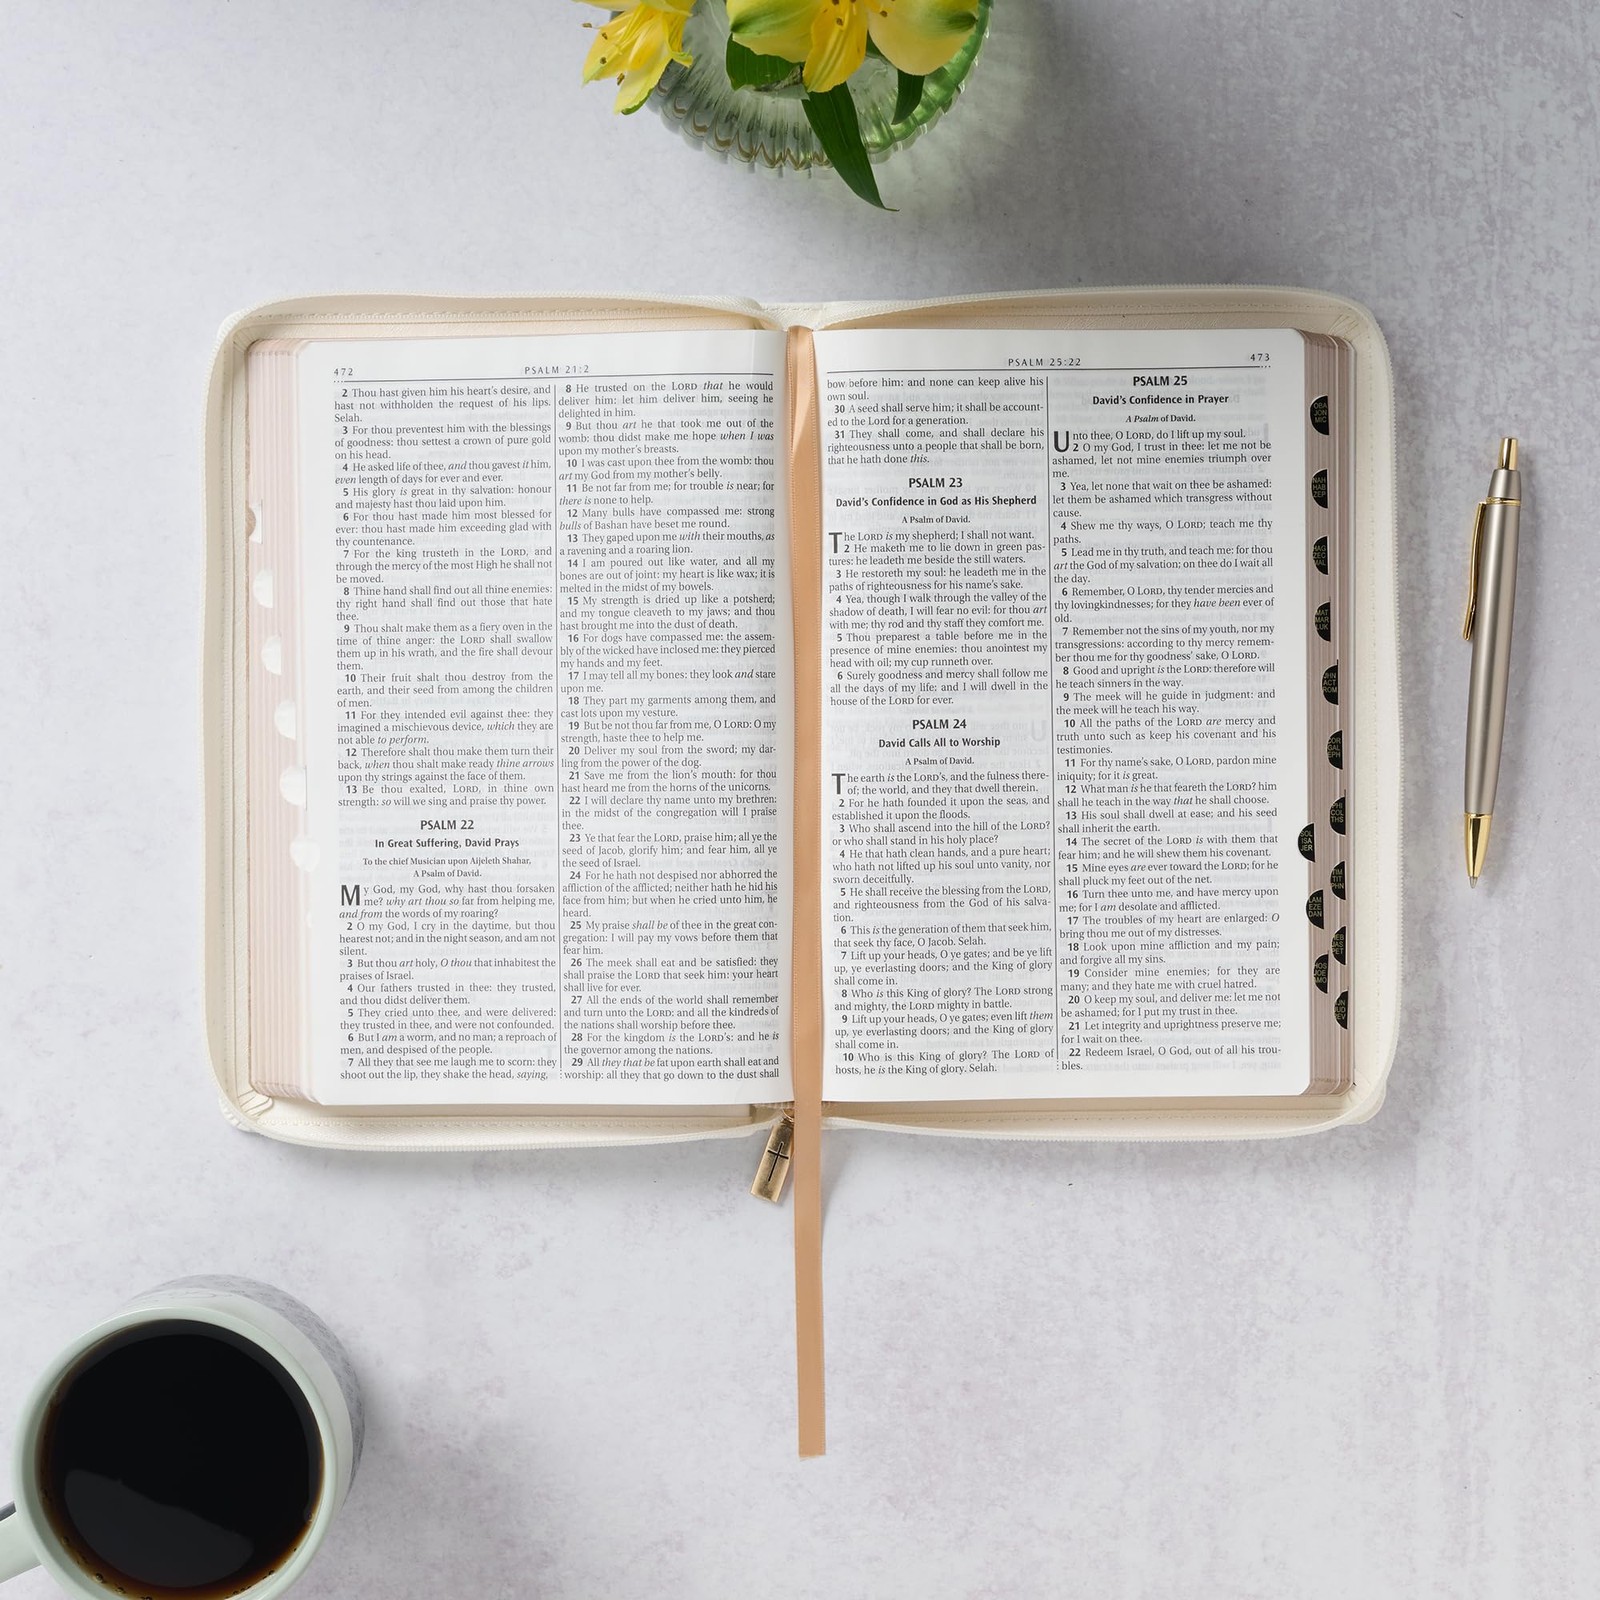 472
PSALM 21:2
2 Thou hast given him his heart's desire, and
hast not withholden the request of his lips.
Selah.
3 For thou preventest him with the blessings
of goodness: thou settest a crown of pure gold
on his head.
4 He asked life of thee, and thou gavest it him,
even length of days for ever and ever.
5 His glory is great in thy salvation: honour
and majesty hast thou laid upon him.
6 For thou hast made him most blessed for
ever: thou hast made him exceeding glad with
thy countenance.
7 For the king trusteth in the LORD, and
through the mercy of the most High he shall not
be moved.
8 Thine hand shall find out all thine enemies:
thy right hand shall find out those that hate
thee.
9 Thou shalt make them as a fiery oven in the
time of thine anger: the LORD shall swallow
them up in his wrath, and the fire shall devour
them.
10 Their fruit shalt thou destroy from the
earth, and their seed from among the children
of men.
11 For they intended evil against thee: they
imagined a mischievous device, which they are
not able to perform.
12 Therefore shalt thou make them turn their
back, when thou shalt make ready thine arrows
upon thy strings against the face of them.
13 Be thou exalted, LORD, in thine own
strength: so will we sing and praise thy power.
PSALM 22
In Great Suffering, David Prays
To the chief Musician upon Aijeleth Shahar,
A Psalm of David.
My God, my God, why hast thou forsaken
me? why art thou so far from helping me,
and from the words of my roaring?
2 O my God, I cry in the daytime, but thou
hearest not; and in the night season, and am not
silent.
3 But thou art holy, O thou that inhabitest the
praises of Israel.
4 Our fathers trusted in thee: they trusted,
and thou didst deliver them.
5 They cried unto thee, and were delivered:
they trusted in thee, and were not confounded.
6 But I am a worm, and no man; a reproach of
men, and despised of the people.
7 All they that see me laugh me to scorn: they
shoot out the lip, they shake the head, saying,
8 He trusted on the LORD that he would
deliver him: let him deliver him, seeing he
delighted in him.
9 But thou art he that took me out of the
womb: thou didst make me hope when I was
upon my mother's breasts.
10 I was cast upon thee from the womb: thou
art my God from my mother's belly.
11 Be not far from me; for trouble is near; for
there is none to help.
12 Many bulls have compassed me: strong
bulls of Bashan have beset me round.
13 They gaped upon me with their mouths, as
a ravening and a roaring lion.
14 I am poured out like water, and all my
bones are out of joint: my heart is like wax; it is
melted in the midst of my bowels.
15 My strength is dried up like a potsherd;
and my tongue cleaveth to my jaws; and thou
hast brought me into the dust of death.
16 For dogs have compassed me: the assem-
bly of the wicked have inclosed me: they pierced
my hands and my feet.
17 I may tell all my bones: they look and stare
upon me.
18 They part my garments among them, and
cast lots upon my vesture.
19 But be not thou far from me, O LORD: O my
strength, haste thee to help me.
20 Deliver my soul from the sword; my dar-
ling from the power of the dog.
21 Save me from the lion's mouth: for thou
hast heard me from the horns of the unicorns.
22 I will declare thy name unto my brethren:
in the midst of the congregation will I praise
thee.
23 Ye that fear the LORD, praise him; all ye the
seed of Jacob, glorify him; and fear him, all ye
the seed of Israel.
24 For he hath not despised nor abhorred the
affliction of the afflicted; neither hath he hid his
face from him; but when he cried unto him, he
heard.
25 My praise shall be of thee in the great con-
gregation: I will pay my vows before them that
fear him.
26 The meek shall eat and be satisfied: they
shall praise the LORD that seek him: your heart
shall live for ever.
27 All the ends of the world shall remember
and turn unto the LORD: and all the kindreds of
the nations shall worship before thee.
28 For the kingdom is the LORD's: and he is
the governor among the nations.
29 All they that be fat upon earth shall eat and
worship: all they that go down to the dust shall
PSALM 25:22
473
bow before him: and none can keep alive his
own soul.
30 A seed shall serve him; it shall be account-
ed to the Lord for a generation.
31 They shall come, and shall declare his
righteousness unto a people that shall be born,
that he hath done this.
PSALM 23
David's Confidence in God as His Shepherd
A Psalm of David.
The LORD is my shepherd; I shall not want.
2 He maketh me to lie down in green pas-
tures: he leadeth me beside the still waters.
3 He restoreth my soul: he leadeth me in the
paths of righteousness for his name's sake.
4 Yea, though I walk through the valley of the
shadow of death, I will fear no evil: for thou art
with me; thy rod and thy staff they comfort me.
5 Thou preparest a table before me in the
presence of mine enemies: thou anointest my
head with oil; my cup runneth over.
6 Surely goodness and mercy shall follow me
all the days of my life: and I will dwell in the
house of the LORD for ever.
PSALM 24
David Calls All to Worship
A Psalm of David.
The earth is the LORD's, and the fulness there-
of; the world, and they that dwell therein.
2 For he hath founded it upon the seas, and
established it upon the floods.
3 Who shall ascend into the hill of the LORD?
or who shall stand in his holy place?
4 He that hath clean hands, and a pure heart;
who hath not lifted up his soul unto vanity, nor
sworn deceitfully.
5 He shall receive the blessing from the LORD,
and righteousness from the God of his salva-
tion.
6 This is the generation of them that seek him,
that seek thy face, O Jacob. Selah.
7 Lift up your heads, O ye gates; and be ye lift
up, ye everlasting doors; and the King of glory
shall come in.
8 Who is this King of glory? The LORD strong
and mighty, the LORD mighty in battle.
9 Lift up your heads, O ye gates; even lift them
up, ye everlasting doors; and the King of glory
shall come in.
10 Who is this King of glory? The LORD of
hosts, he is the King of glory. Selah.
PSALM 25
David's Confidence in Prayer
A Psalm of David.
Unto thee, O LORD, do I lift up my soul.
2 O my God, I trust in thee: let me not be
ashamed, let not mine enemies triumph over
me.
3 Yea, let none that wait on thee be ashamed:
let them be ashamed which transgress without
cause.
4 Shew me thy ways, O LORD; teach me thy
paths.
5 Lead me in thy truth, and teach me: for thou
art the God of my salvation; on thee do I wait all
the day.
6 Remember, O LORD, thy tender mercies and
thy lovingkindnesses; for they have been ever of
old.
7 Remember not the sins of my youth, nor my
transgressions: according to thy mercy remem-
ber thou me for thy goodness' sake, O LORD.
8 Good and upright is the LORD: therefore will
he teach sinners in the way.
9 The meek will he guide in judgment: and
the meek will he teach his way.
10 All the paths of the LORD are mercy and
truth unto such as keep his covenant and his
testimonies.
11 For thy name's sake, O LORD, pardon mine
iniquity; for it is great.
12 What man is he that feareth the LORD? him
shall he teach in the way that he shall choose.
13 His soul shall dwell at ease; and his seed
shall inherit the earth.
14 The secret of the LORD is with them that
fear him; and he will shew them his covenant.
15 Mine eyes are ever toward the LORD; for he
shall pluck my feet out of the net.
16 Turn thee unto me, and have mercy upon
me; for I am desolate and afflicted.
17 The troubles of my heart are enlarged: O
bring thou me out of my distresses.
18 Look upon mine affliction and my pain;
and forgive all my sins.
19 Consider mine enemies; for they are
many; and they hate me with cruel hatred.
20 O keep my soul, and deliver me: let me not
be ashamed; for I put my trust in thee.
21 Let integrity and uprightness preserve me;
for I wait on thee.
22 Redeem Israel, O God, out of all his trou-
bles.
MAT
MAR
LUK
ISA
JER
LAM
EZE
DAN